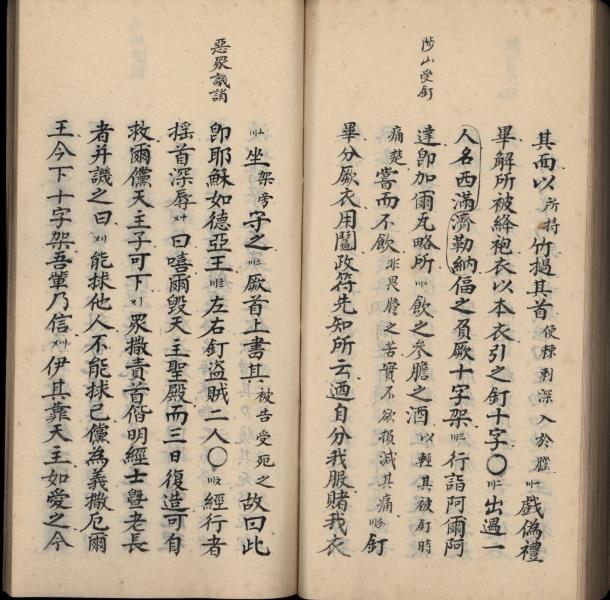 陟山受釘
其面以所持竹撾其首使棘刺深入於腦卅戲偽禮
畢解所被絳袍衣以本衣引之釘十字〇出遇一
人名西滿濟勒納偪之負厥十字架行詣阿爾阿
達卽加爾瓦略所飲之參膽之酒以輕其被釘時
痛楚嘗而不飲非畏膽之苦實不欲損減其痛釘
畢分厥衣用鬮政符先知所云迺自分我服賭我衣
惡眾譏誚
坐架旁守之厥首上書其被告受死之故曰此
卽耶穌如德亞王左右釘盜賊二人〇經行者
搖首深辱曰嘻爾毀天主聖殿而三日復造可自
救爾儻天主子可下眾撒責首偕明經士曁老長
者并譏之曰能捄他人不能捄己儻為義撒尼爾
王今下十字架吾輩乃信伊其靠天主如愛之今